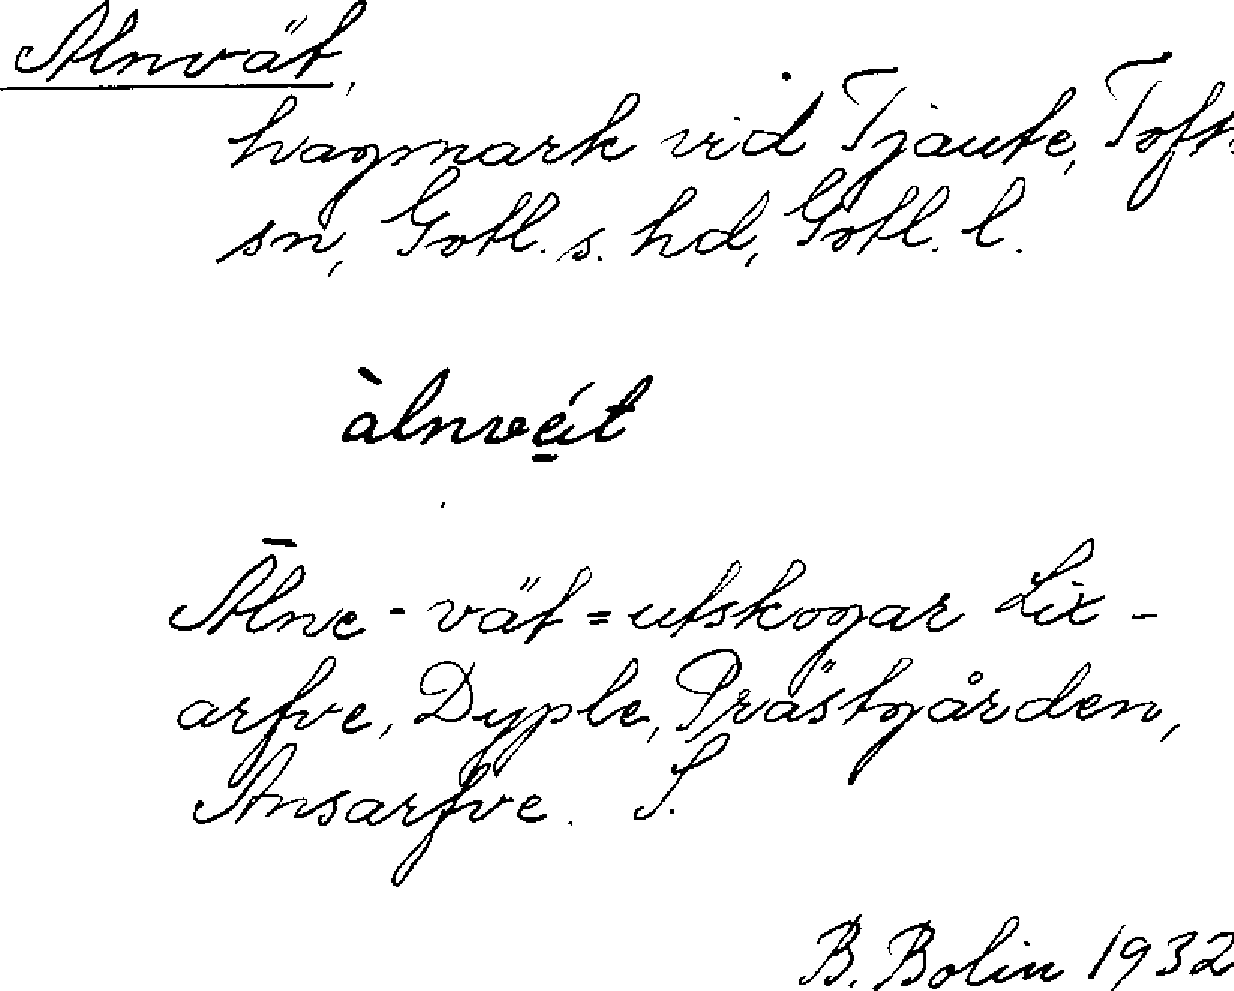 Alnvät,
hagmark vid Tjaute, Tofta
sn, Gotl. s. hd, Gotl. l.
àlnvé̱it
Ālne - vät = utskogar Lix-
arfve, Dyple, Prästgården,
Ansarfve. S.
B. Bolin 1932